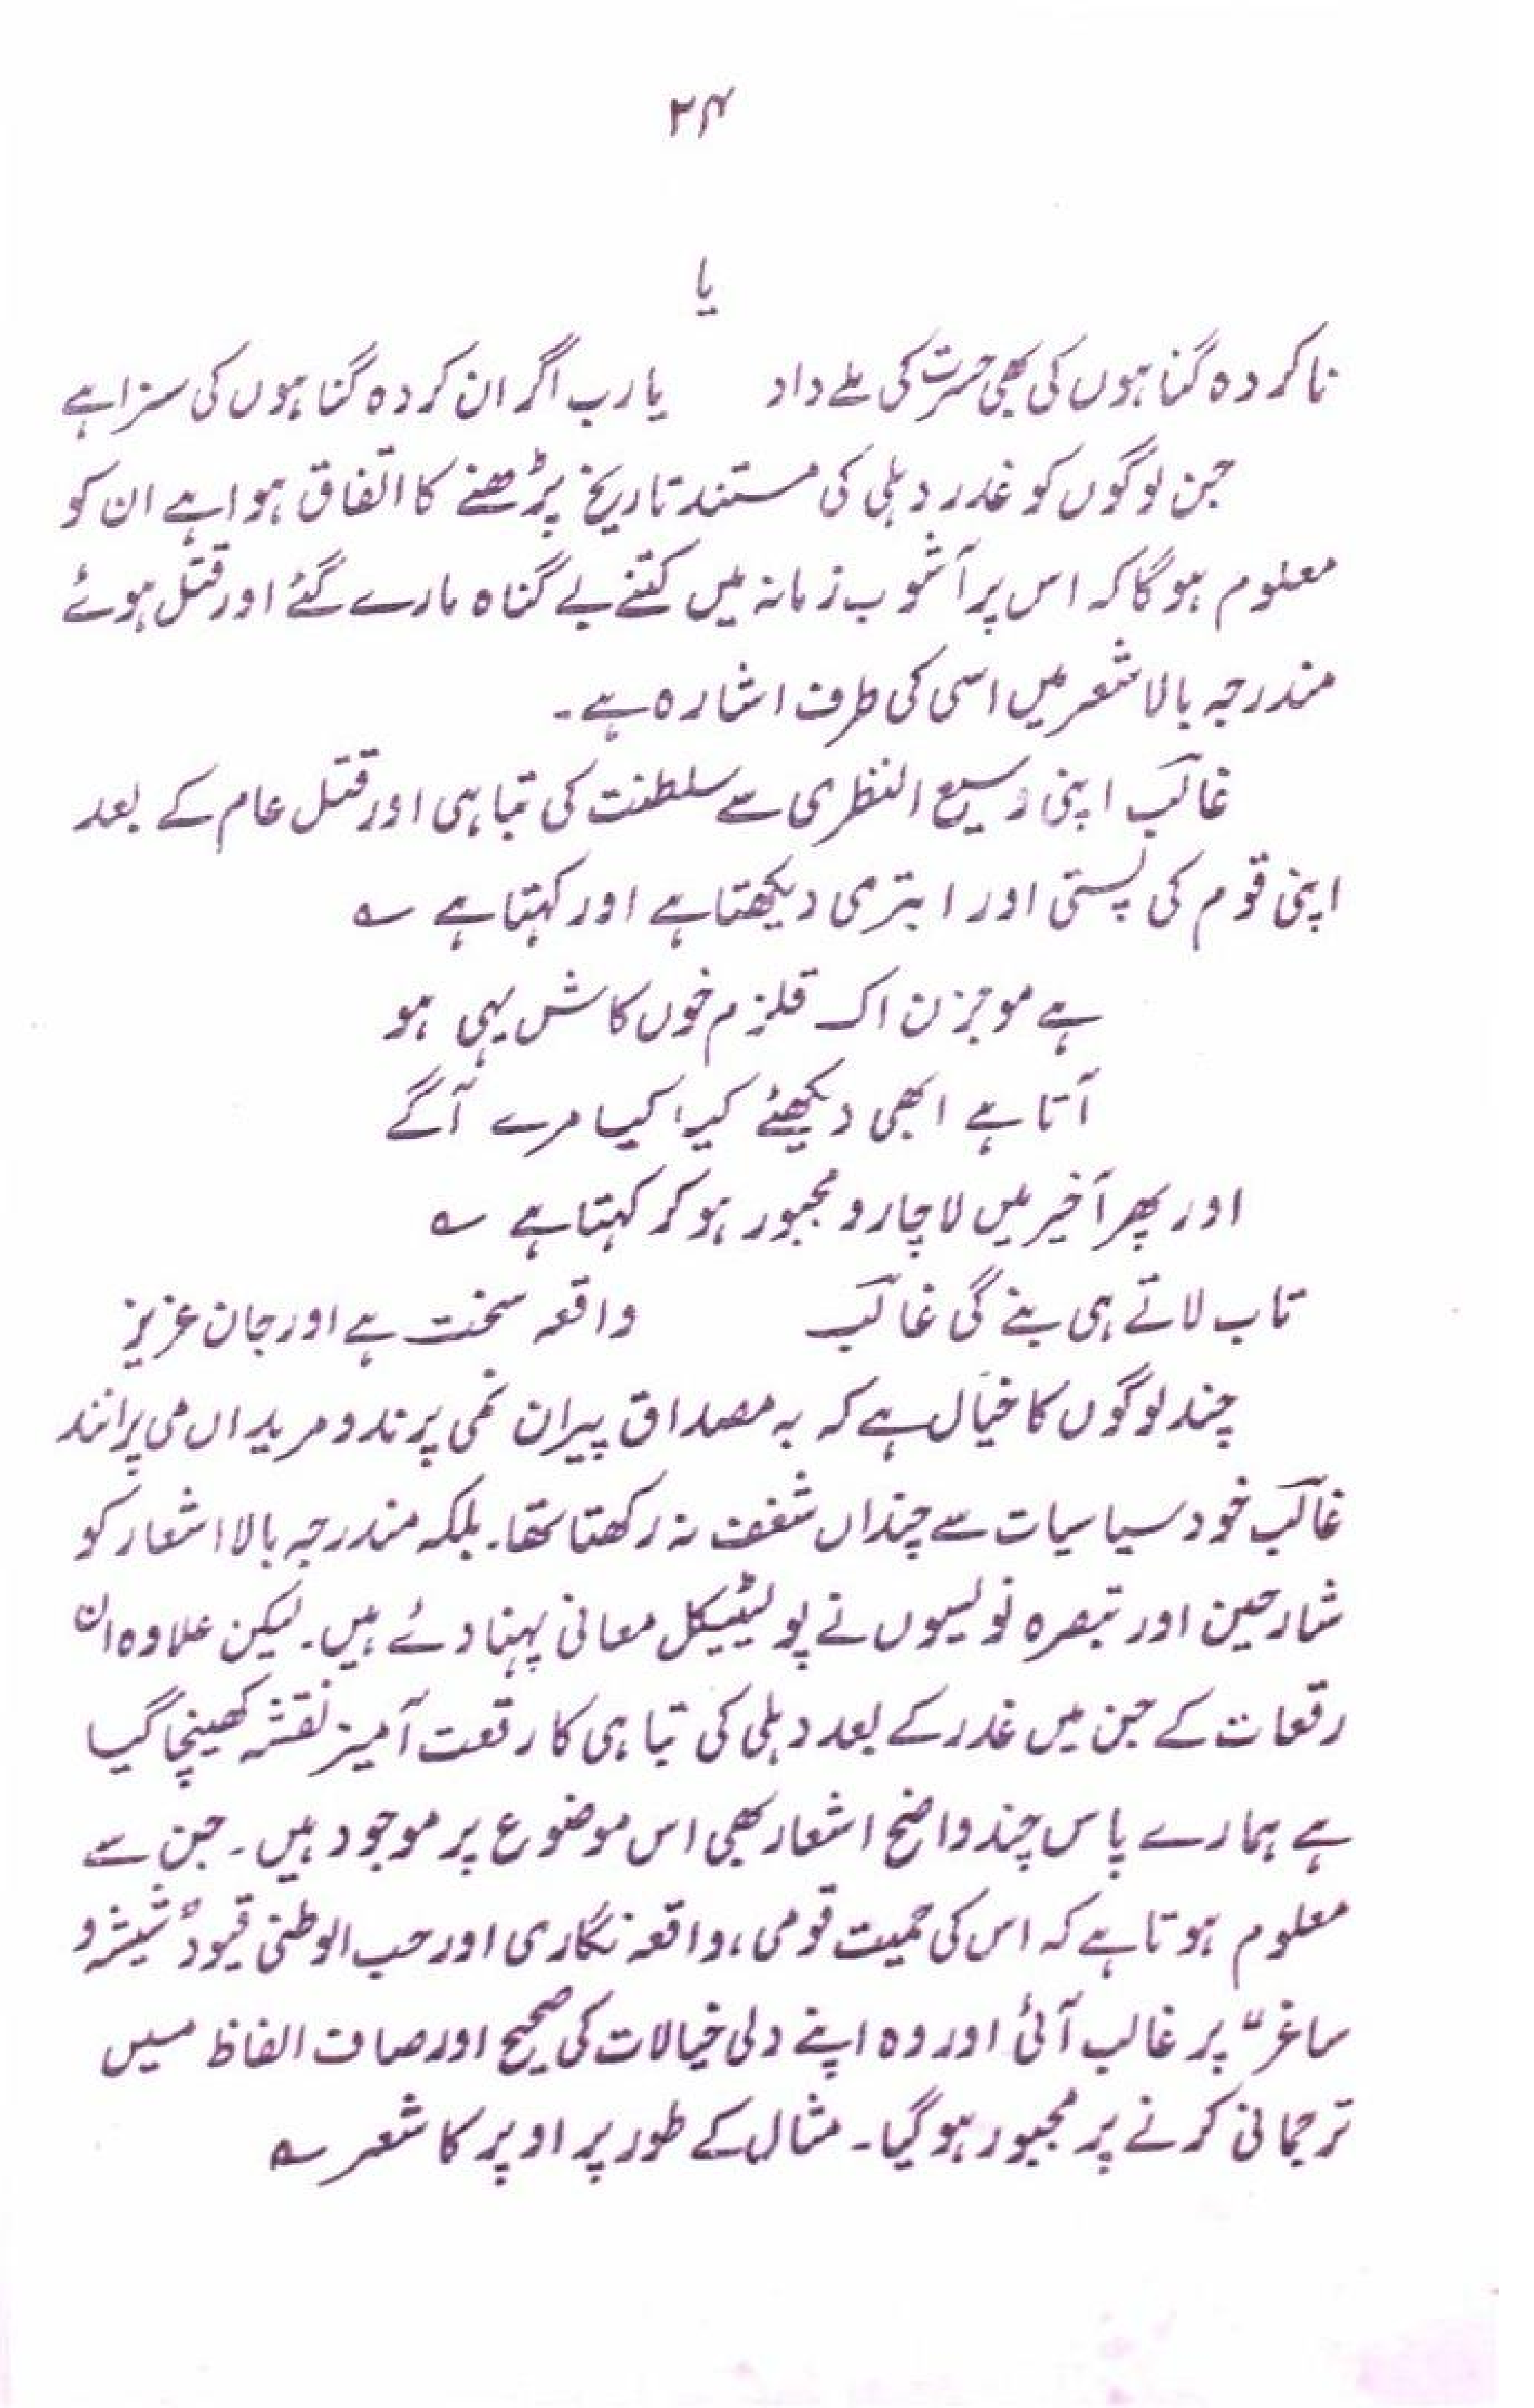 ۲۴
یا
ناکردہ گناہوں کی بھی حسرت کی ملے داد یارب اگر ان کردہ گناہوں کی سزا ہے
جن لوگوں کو غدر دہلی کی مستند تاریخ پڑھنے کا اتفاق ہوا ہے ان کو
معلوم ہوگا کہ اس پر آشوب زمانہ میں کتنے بے گناہ مارے گئے اور قتل ہوئے
مندرجہ بالا شعر میں اسی کی طرف اشارہ ہے۔
غالب اپنی وسیع النظری سے سلطنت کی تباہی اور قتل عام کے بعد
اپنی قوم کی پستی اور ابتری دیکھتا ہے اور کہتا ہے ؎
ہے موجزن اک قلزم خوں کاش یہی ہو
آتا ہے ابھی دیکھئے کیا کیا مرے آگے
اور پھر آخیر میں لاچار و مجبور ہو کر کہتا ہے ؎
تاب لاتے ہی بنے گی غالب واقعہ سخت ہے اور جان عزیز
چند لوگوں کا خیال ہے کہ بہ مصداق پیران نمی پرند و مریداں می پرانند
غالب خود سیاسیات سے چنداں شغف نہ رکھتا تھا۔ بلکہ مندرجہ بالا اشعار کو
شارحین اور تبصرہ نویسوں نے پولیٹیکل معانی پہنا دئے ہیں۔ لیکن علاوہ ان
رقعات کے جن میں غدر کے بعد دہلی کی تباہی کا رقعت آمیز نقشہ کھینچا گیا
ہے ہمارے پاس چند واضح اشعار بھی اس موضوع پر موجود ہیں۔ جن سے
معلوم ہوتا ہے کہ اس کی حمیت قومی، واقعہ نگاری اور حب الوطنی قیود "شیشہ و
ساغر" پر غالب آئی اور وہ اپنے دلی خیالات کی صحیح اور صاف الفاظ میں
ترجمانی کرنے پر مجبور ہوگیا۔ مثال کے طور پر اوپر کا شعر ؎